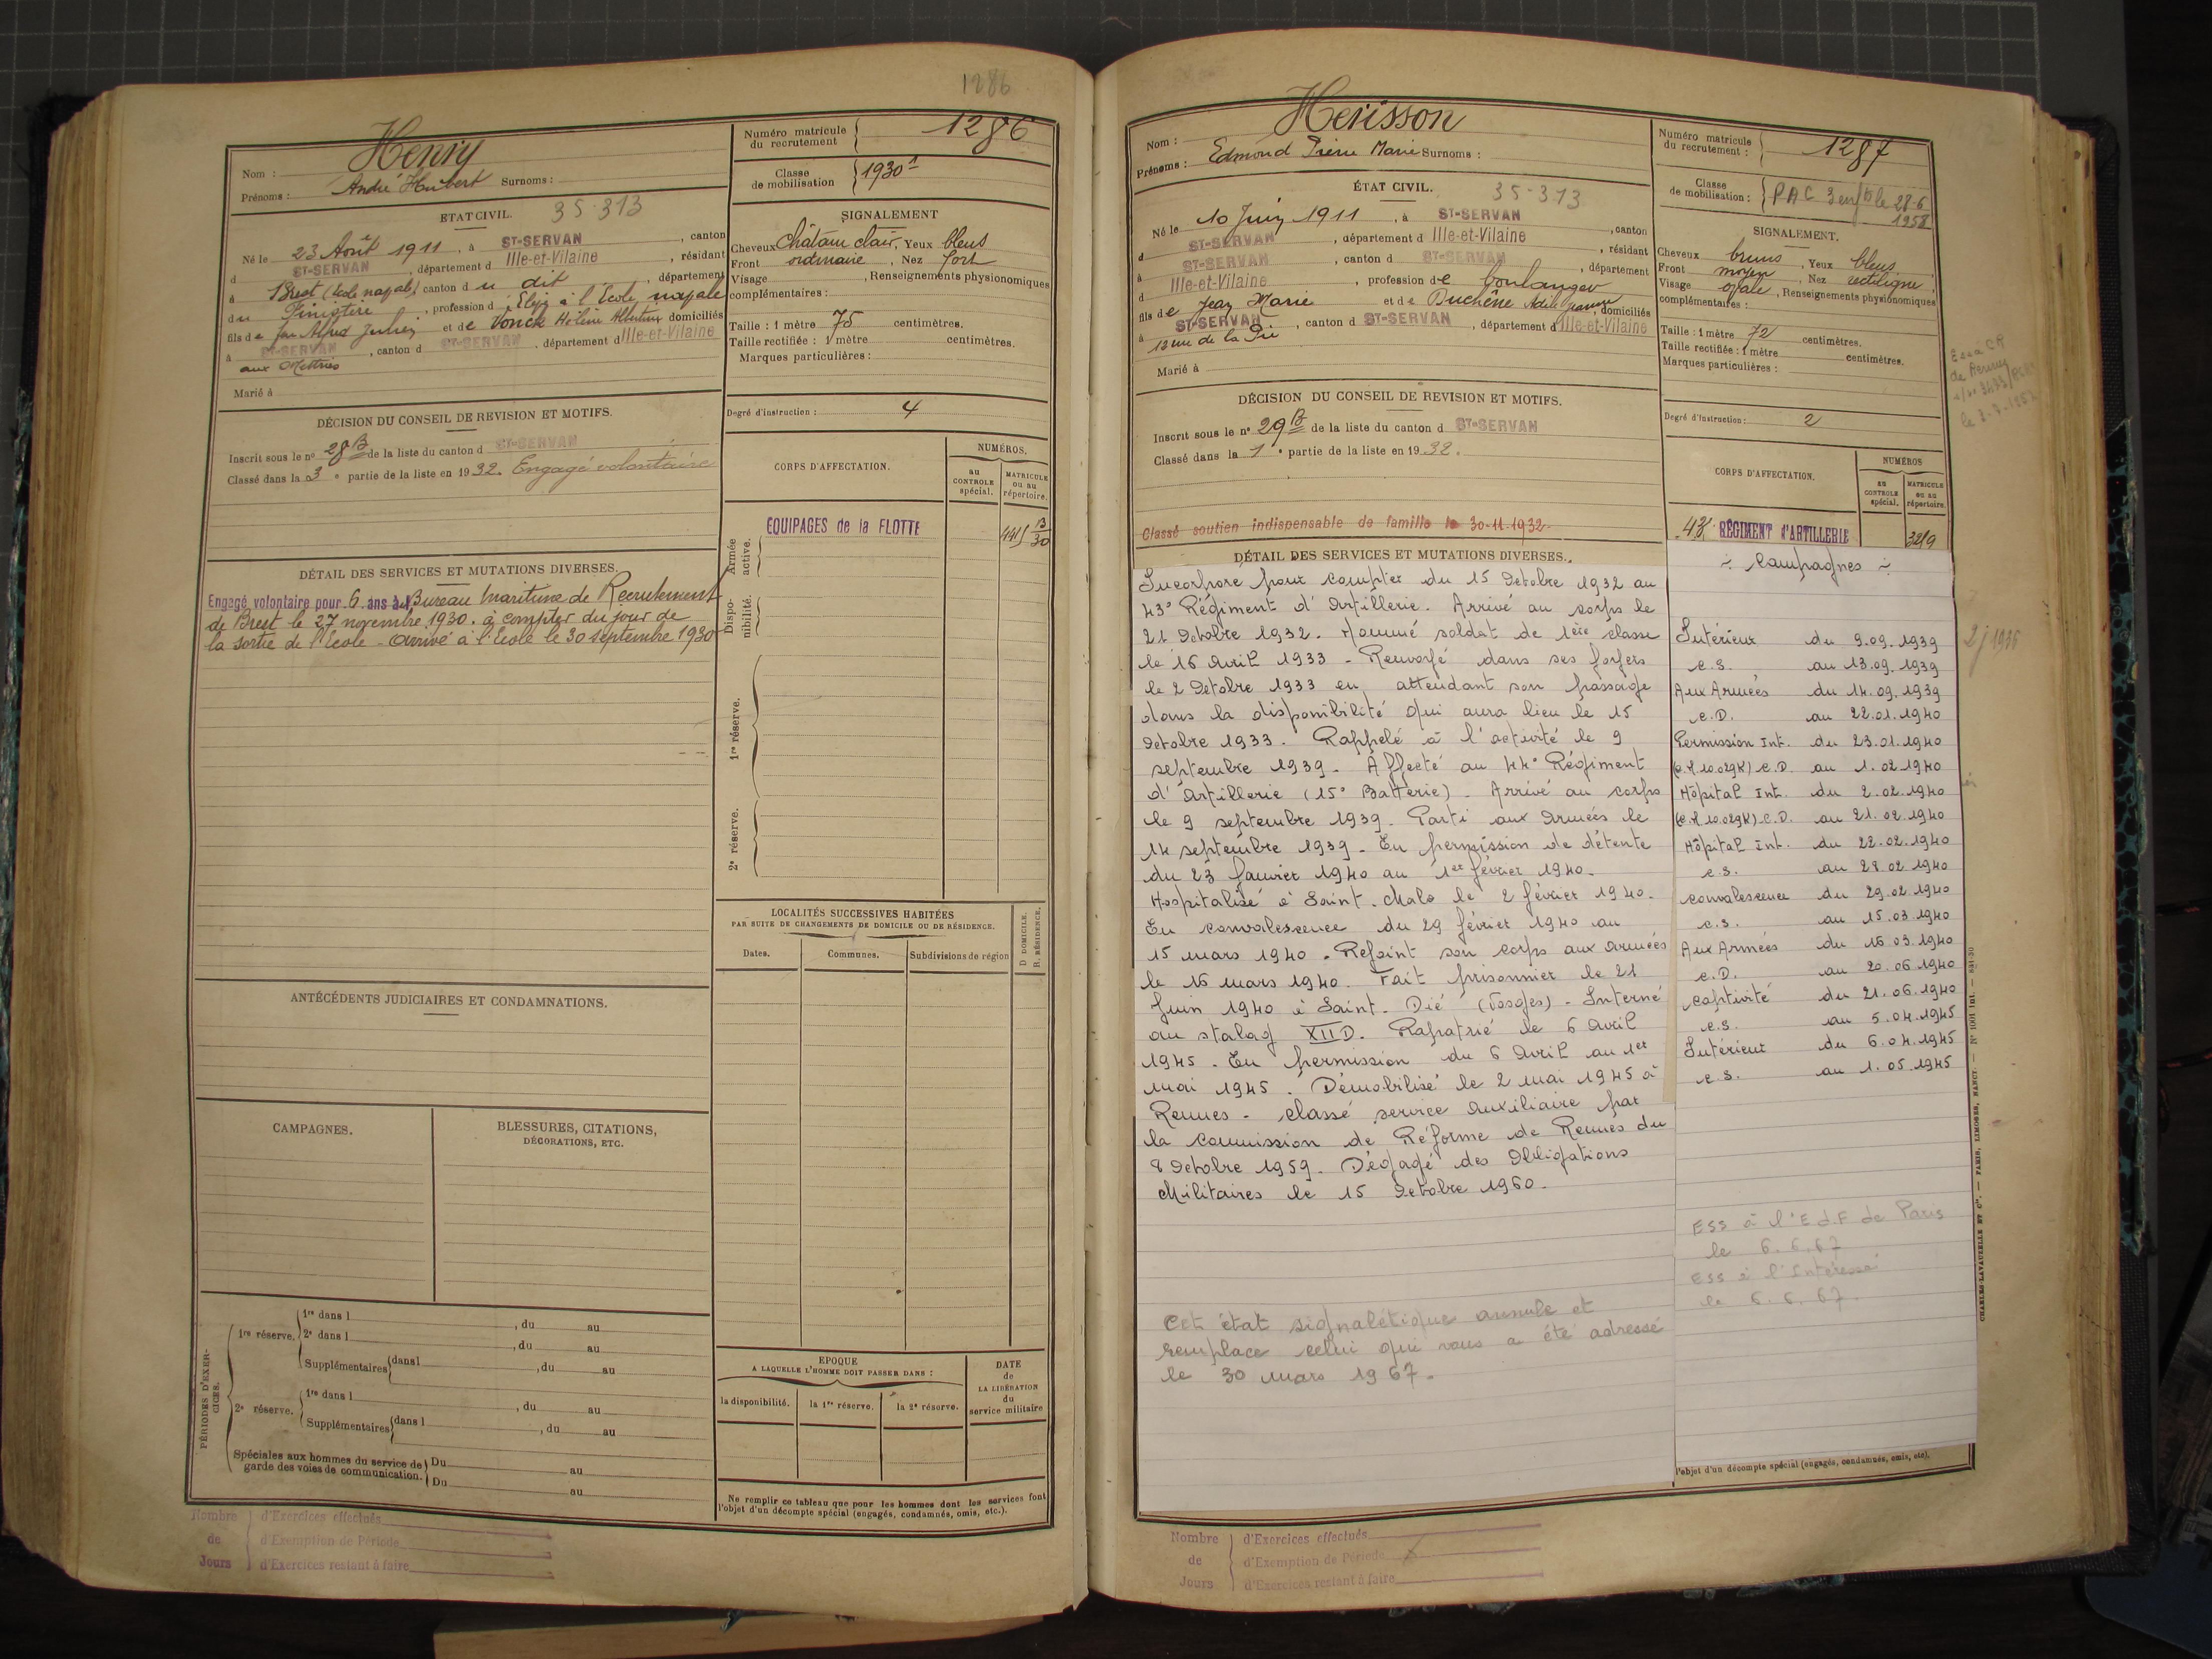 1286
Henry
Nom :
Prénoms : André Hubert Surnoms :
Numéro matricule du recrutement 1286
Classe de mobilisation 1930
ETAT CIVIL. 35-313
Né le 23 Août 1911, à ST-SERVAN, canton
d ST-SERVAN, département d Ille-et-Vilaine, résidant
à Brest (Ecole navale) canton d u dit, département
du Finistère, profession d Elève à l'Ecole navale
fils de feu Alfred Julien et de Vonck Hélène Albertine domiciliés
à ST-SERVAN, canton d ST-SERVAN, département d Ille-et-Vilaine
aux
Marié à
SIGNALEMENT
Cheveux Châtain clair, Yeux bleus
Front ordinaire, Nez fort
Visage , Renseignements physionomiques
complémentaires :
Taille : 1 mètre 75 centimètres.
Taille rectifiée : 1 mètre centimètres.
Marques particulières :
Degré d'instruction : 4
DÉCISION DU CONSEIL DE REVISION ET MOTIFS.
Inscrit sous le n° 28 B de la liste du canton d ST-SERVAN
Classé dans la 3e partie de la liste en 1932. Engagé volontaire
CORPS D'AFFECTATION.
NUMÉROS,
au CONTROLE spécial.
MATRICULE ou au répertoire.
Armée active.
EQUIPAGES de la FLOTTE
Disponibilité.
1re réserve.
2e réserve.
DÉTAIL DES SERVICES ET MUTATIONS DIVERSES.
Engagé volontaire pour 6 ans au Bureau Maritime de Recrutement
de Brest le 27 novembre 1930. à compter du jour de
la sortie de l'Ecole - Arrivé à l'Ecole le 30 septembre 1930
LOCALITÉS SUCCESSIVES HABITÉES
PAR SUITE DE CHANGEMENTS DE DOMICILE OU DE RÉSIDENCE.
D DOMICILE. R. RÉSIDENCE.
Dates.
Communes.
Subdivisions de région
ANTÉCÉDENTS JUDICIAIRES ET CONDAMNATIONS.
CAMPAGNES.
BLESSURES, CITATIONS,
DÉCORATIONS, ETC.
PÉRIODES D'EXERCICES.
1re réserve.
1re dans l , du au
2e dans l , du au
Supplémentaires dans l , du au
2e réserve.
1re dans l , du au
Supplémentaires dans l , du au
Spéciales aux hommes du service de garde des voies de communication.
Du au
Du au
EPOQUE
A LAQUELLE L'HOMME DOIT PASSER DANS :
la disponibilité.
la 1re réserve.
la 2e réserve.
DATE de LA LIBÉRATION du service militaire
Ne remplir ce tableau que pour les hommes dont les services font
l'objet d'un décompte spécial (engagés, condamnés, omis, etc.).
Nombre de Jours
d'Exercices effectués
d'Exemption de Période
d'Exercices restant à faire
Herisson
Nom :
Prénoms : Edmond Pierre Marie Surnoms :
Numéro matricule du recrutement : 1287
Classe de mobilisation : PAC 3 enfts le 28-6
1958
ÉTAT CIVIL. 35-313
Né le 10 Juin 1911, à ST-SERVAN, canton
d ST-SERVAN, département d Ille-et-Vilaine, résidant
à ST-SERVAN, canton d ST-SERVAN, département
d Ille-et-Vilaine, profession de boulanger
fils de Jean Marie et de Duchêne Adèle Jeanne, domiciliés
à ST-SERVAN, canton d ST-SERVAN, département d Ille-et-Vilaine
12 rue de la Pie
Marié à
SIGNALEMENT.
Cheveux bruns, Yeux bleus,
Front moyen, Nez rectiligne,
Visage ovale, Renseignements physionomiques
complémentaires :
Taille : 1 mètre 72 centimètres.
Taille rectifiée : 1 mètre centimètres.
Marques particulières :
Degré d'instruction : 2
DÉCISION DU CONSEIL DE REVISION ET MOTIFS.
Inscrit sous le n° 29 B de la liste du canton d ST-SERVAN
Classé dans la 1e partie de la liste en 1932.
Classé soutien indispensable de famille le 30-11-1932
CORPS D'AFFECTATION.
NUMÉROS
au CONTROLE spécial.
MATRICULE ou au répertoire.
43e RÉGIMENT D'ARTILLERIE 3219
DÉTAIL DES SERVICES ET MUTATIONS DIVERSES.
Incorporé pour compter du 15 Octobre 1932 au
43° Régiment d'Artillerie. Arrivé au corps le
21 Octobre 1932. Nommé soldat de 1ère classe
le 16 Avril 1933 - Renvoyé dans ses foyers
le 2 Octobre 1933 en attendant son passage
dans la disponibilité qui aura lieu le 15
Octobre 1933. Rappelé à l'activité le 9
septembre 1939. Affecté au 44° Régiment
d'Artillerie (15° Batterie). Arrivé au corps
le 9 septembre 1939. Parti aux Armées le
14 septembre 1939. En permission de détente
du 23 Janvier 1940 au 1er février 1940.
Hospitalisé à Saint-Malo le 2 février 1940.
En convalescence du 29 février 1940 au
15 mars 1940. Rejoint son corps aux Armées
le 16 mars 1940. Fait prisonnier le 21
Juin 1940 à Saint-Dié (Vosges) - Interné
au stalag XII D. Rapatrié le 6 Avril
1945. En permission du 6 Avril au 1er
mai 1945. Démobilisé le 2 mai 1945 à
Rennes - Classé service Auxiliaire par
la Commission de Réforme de Rennes du
8 Octobre 1959. Dégagé des Obligations
Militaires le 15 Octobre 1960.
Cet état signalétique annule et
remplace celui qui vous a été adressé
le 30 mars 1967.
~ Campagnes ~
Intérieur du 9.09.1939
C.S. au 13.09.1939
Aux Armées du 14.09.1939
C.D. au 22.01.1940
Permission Int. du 23.01.1940
(C.M 10.029K) C.D. au 1.02.1940
Hôpital Int. du 2.02.1940
(C.M 10.029K) C.D. au 21.02.1940
Hôpital Int. du 22.02.1940
C.S. au 28.02.1940
Convalescence du 29.02.1940
C.S. au 15.03.1940
Aux Armées du 16.03.1940
C.D. au 20.06.1940
Captivité du 21.06.1940
C.S. au 5.04.1945
Intérieur du 6.04.1945
C.S. au 1.05.1945
ESS à l'E.d.F de Paris
le 6.6.67
ESS à l'Intéressé
le 6.6.67.
l'objet d'un décompte spécial (engagés, condamnés, omis, etc).
CHARLES-LAVAUZELLE ET Cie. — PARIS, LIMOGES, NANCY. — N° 1001 Int. — 831-30
Nombre de Jours
d'Exercices effectués
d'Exemption de Période
d'Exercices restant à faire